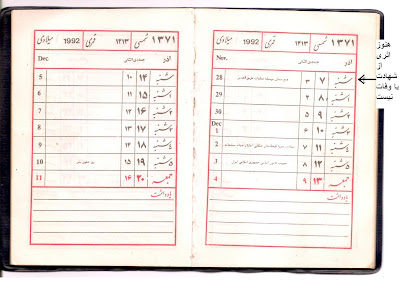 هنوز
اثری
از
شهادت
یا وفات
نیست
۱۳۷۱ شمسی ۱۴۱۳ قمری 1992 میلادی
آذر جمادی الثانی Nov.
شنبه ۷ ۳ 28
۱شنبه ۸ ۴ 29
۲شنبه ۹ ۵ 30
Dec
۳شنبه ۱۰ ۶ 1
۴شنبه ۱۱ ۷ 2
۵شنبه ۱۲ ۸ 3
جمعه ۱۳ ۹ 4
یادداشت
۱۳۷۱ شمسی ۱۴۱۳ قمری 1992 میلادی
آذر جمادی الثانی Dec
شنبه ۱۴ ۱۰ 5
۱شنبه ۱۵ ۱۱ 6
۲شنبه ۱۶ ۱۲ 7
۳شنبه ۱۷ ۱۳ 8
۴شنبه ۱۸ ۱۴ 9
۵شنبه ۱۹ ۱۵ 10
جمعه ۲۰ ۱۶ 11
یادداشت